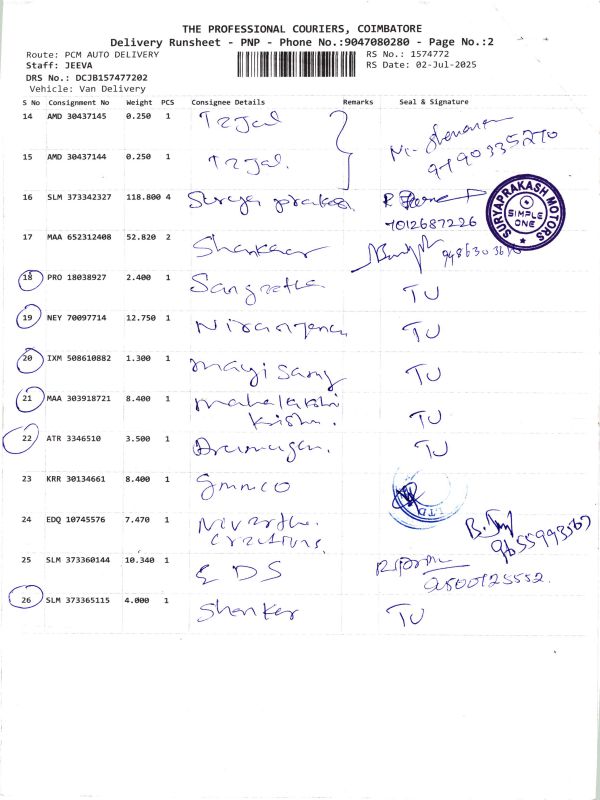 THE PROFESSIONAL COURIERS, COIMBATORE
Delivery Runsheet - PNP - Phone No.:9047080280 - Page No.:2
Route: PCM AUTO DELIVERY RS No.: 1574772
Staff: JEEVA RS Date: 02-Jul-2025
DRS No.: DCJB157477202
Vehicle: Van Delivery
S No Consignment No Weight PCS Consignee Details Remarks Seal & Signature
14 AMD 30437145 0.250 1
15 AMD 30437144 0.250 1
16 SLM 373342327 118.800 4 Surya prakash
7012687226
SURYAPRAKASH MOTORS
SIMPLE ONE
17 MAA 652312408 52.820 2 Shankaar
18 PRO 18038927 2.400 1 Sangeetha TU
19 NEY 70097714 12.750 1 Niranjana TU
20 IXM 508610882 1.300 1 Magisamy TU
21 MAA 303918721 8.400 1 Mahalakshi TU
Krishn.
22 ATR 3346510 3.500 1 Arumugam. TU
23 KRR 30134661 8.400 1 Gmmco
LTD
24 EDQ 10745576 7.470 1
Creations.
25 SLM 373360144 10.340 1 EDS
9500125552.
26 SLM 373365115 4.000 1 Shanker TU